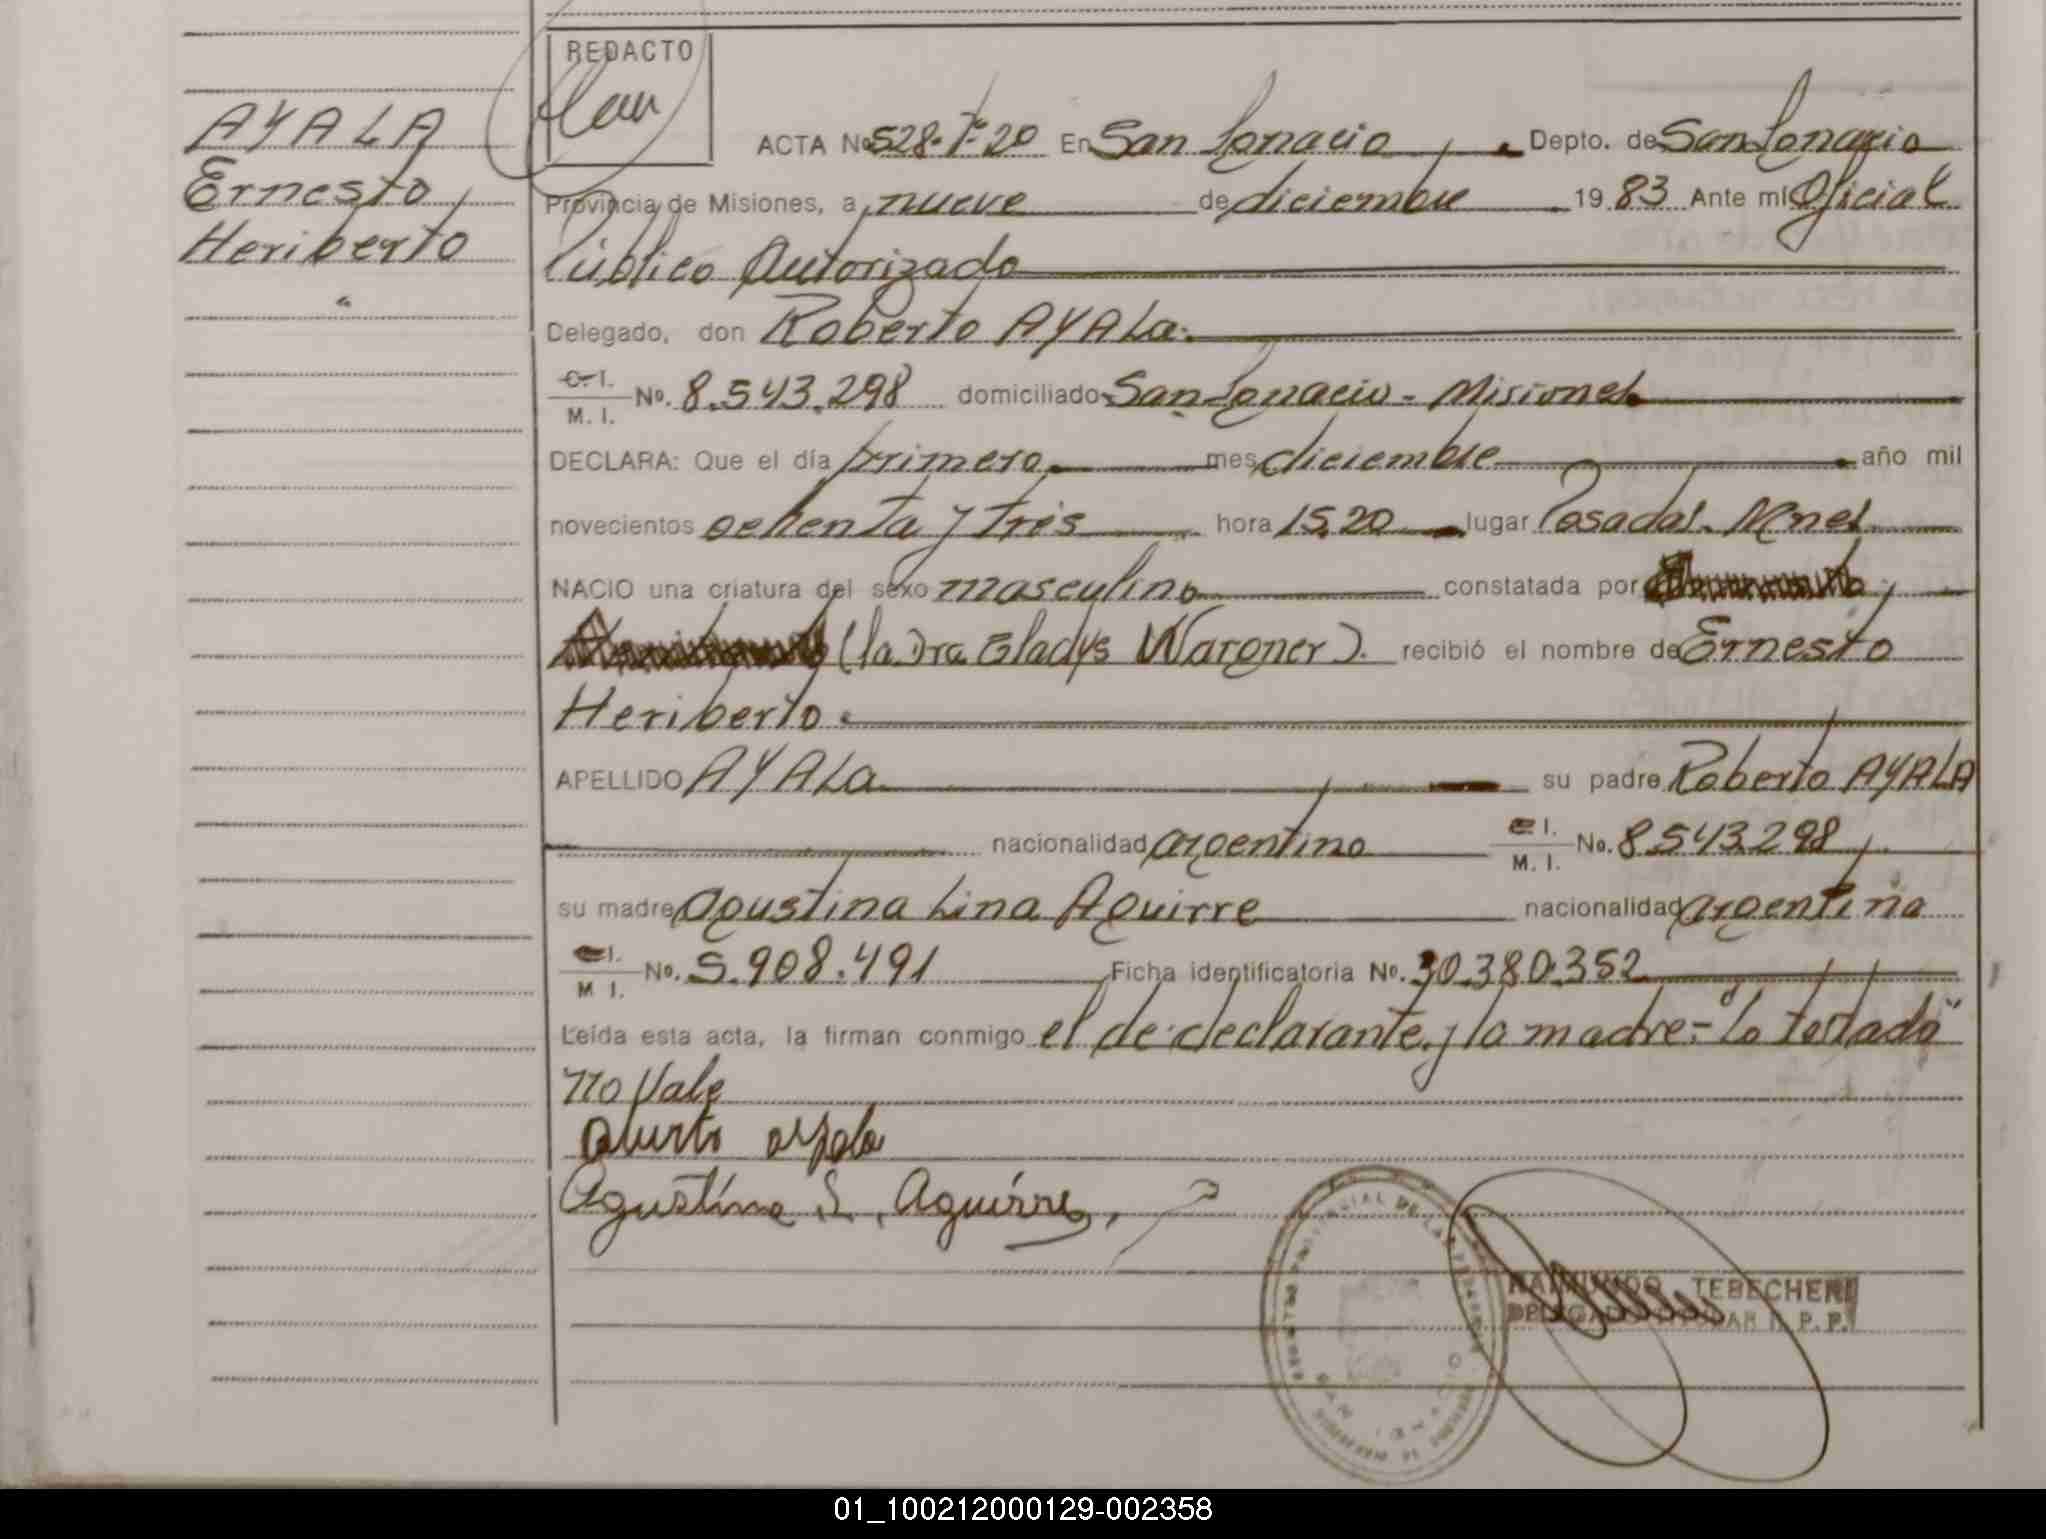 REDACTO
AYALA
Ernesto
Heriberto
ACTA Nº 528-Tº-20 En San Ignacio Depto. de San Ignacio
Provincia de Misiones, a nueve de diciembre 1983 Ante mí Oficial
Público Autorizado
Delegado, don Roberto AYALa.
C. I. / M. I. No. 8.543.298 domiciliado San Ignacio - Misiones
DECLARA: Que el día primero mes diciembre año mil
novecientos ochenta y trés hora 15,20 lugar Posadas. Mnes
NACIO una criatura del sexo masculino constatada por
(la Dra Gladys Wargner). recibió el nombre de Ernesto
Heriberto.
APELLIDO AYALa su padre Roberto AYALA
nacionalidad argentino C I. / M. I. No. 8.543.298
su madre Agustina Lina Aguirre nacionalidad argentina
C I. / M I. No. 5.908.491 Ficha identificatoria No. 30.380.352
Leída esta acta, la firman conmigo el de declarante y la madre:-"Lo testado"
no Vale
Agustina L. Aguirre,
RAIMUNDO TEBECHERI
DELEGADO TITULAR R. P. P.
SAN IGNACIO
01_100212000129-002358